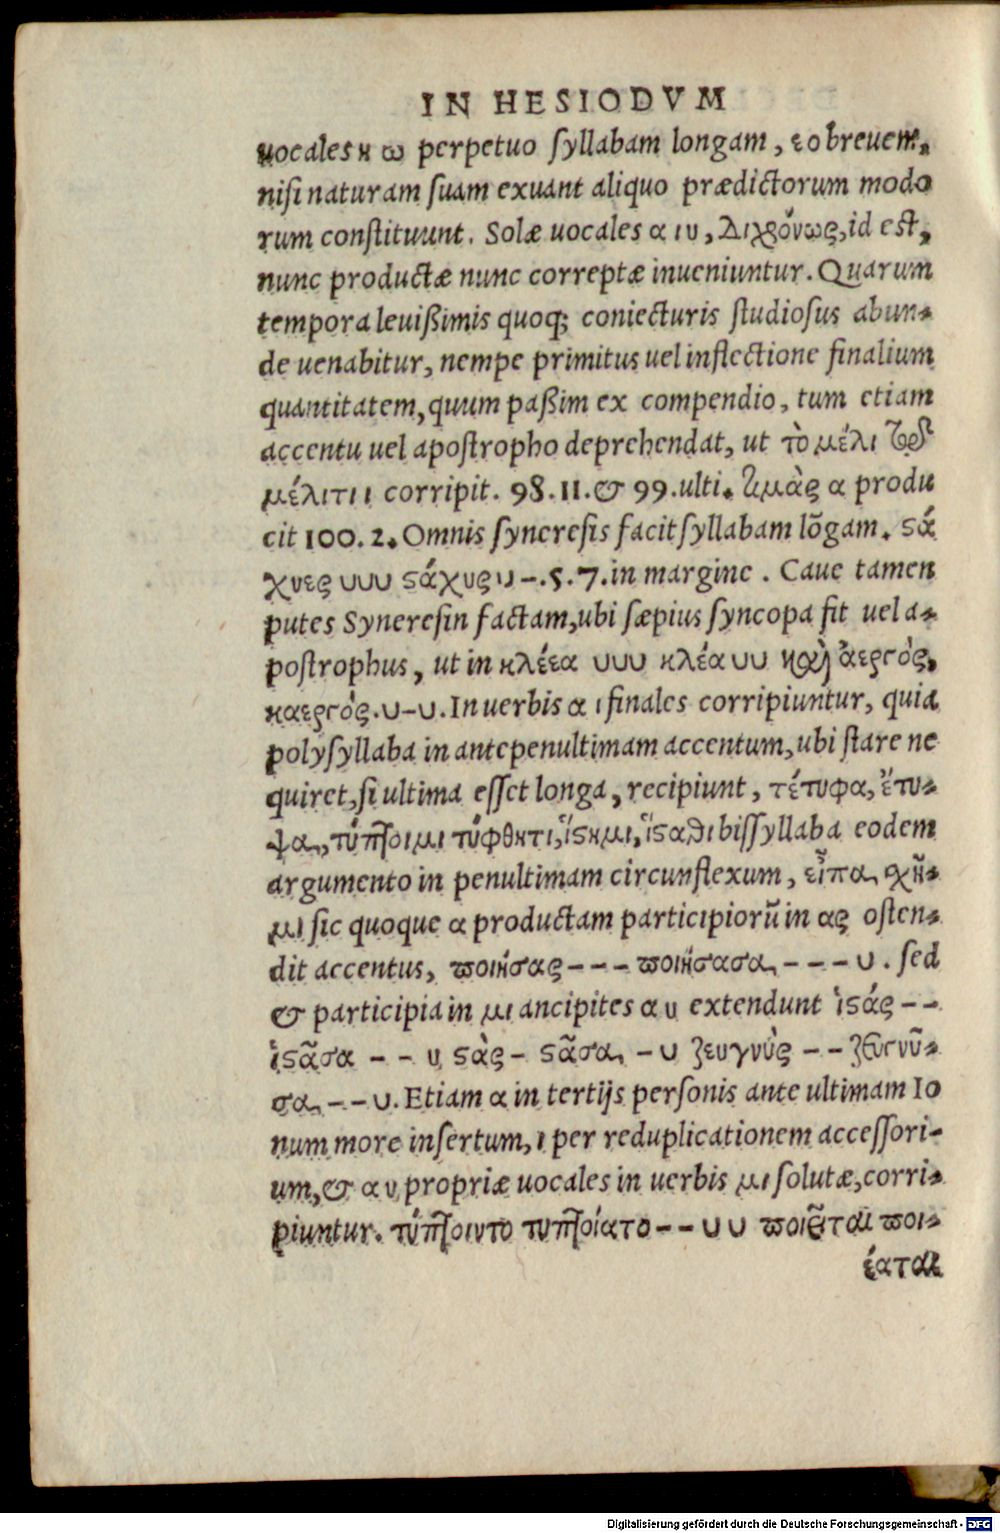 IN HESIODVM
uocales η ω perpetuo ſyllabam longam, ε ο breuem,
niſi naturam ſuam exuant aliquo prædictorum modo
rum conſtituunt. Solæ uocales α ι υ, διχρόνως, id eſt,
nunc productæ nunc correptæ inueniuntur. Quarum
tempora leuißimis quoq; coniecturis ſtudioſus abun-
de uenabitur, nempe primitus uel inflectione finalium
quantitatem, quum paßim ex compendio, tum etiam
accentu uel apoſtropho deprehendat, ut τὸ μέλι τοῦ
μέλιτι ι corripit. 98. 11. & 99. ulti. ὑμὰς α produ
cit 100. 2. Omnis ſyncreſis facit ſyllabam lõgam. ϛά
χυες υυυ ϛάχυς υ –. 5. 7. in margine. Caue tamen
putes Synereſin factam, ubi ſæpius ſyncopa fit uel a-
poſtrophus, ut in κλέεα υυυ κλέα υυ καὶ ἀεργὸς,
καεργὸς. υ – υ. In uerbis α ι finales corripiuntur, quia
polyſyllaba in antepenultimam accentum, ubi ſtare ne
quiret, ſi ultima eſſet longa, recipiunt, τέτυφα, ἔτυ-
ψα, τύπτοιμι τύφθητι, ἵϛημι, ἵϛαθι biſſyllaba eodem
argumento in penultimam circunflexum, εἶπα, χῆ-
μι ſic quoque α productam participiorũ in ας oſten-
dit accentus, ποιήσας – – – ποιήσασα, – – – υ. ſed
& participia in μι ancipites α υ extendunt ἱϛάς – –
ἱϛᾶσα – – υ ϛὰς – ϛᾶσα, – υ ζευγνὺς – – ζευγνῦ-
σα, – – υ. Etiam α in tertijs perſonis ante ultimam Io
num more inſertum, ι per reduplicationem acceſſori-
um, & α υ propriæ uocales in uerbis μι ſolutæ, corri-
piuntur. τύπτοιντο τυπτοίατο – – υ υ ποιεῖται ποι-
έαται